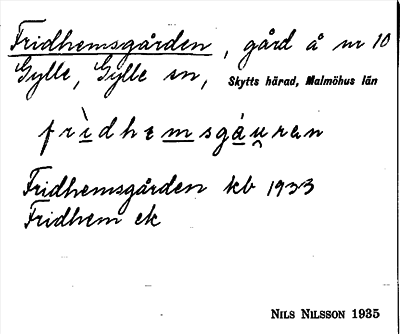 Fridhemsgården, gård å nr 10
Gylle, Gylle sn, Skytts härad, Malmöhus län
frìdhemsgáu̯ran
Fridhemsgården kb 1933
Fridhem ek
NILS NILSSON 1935